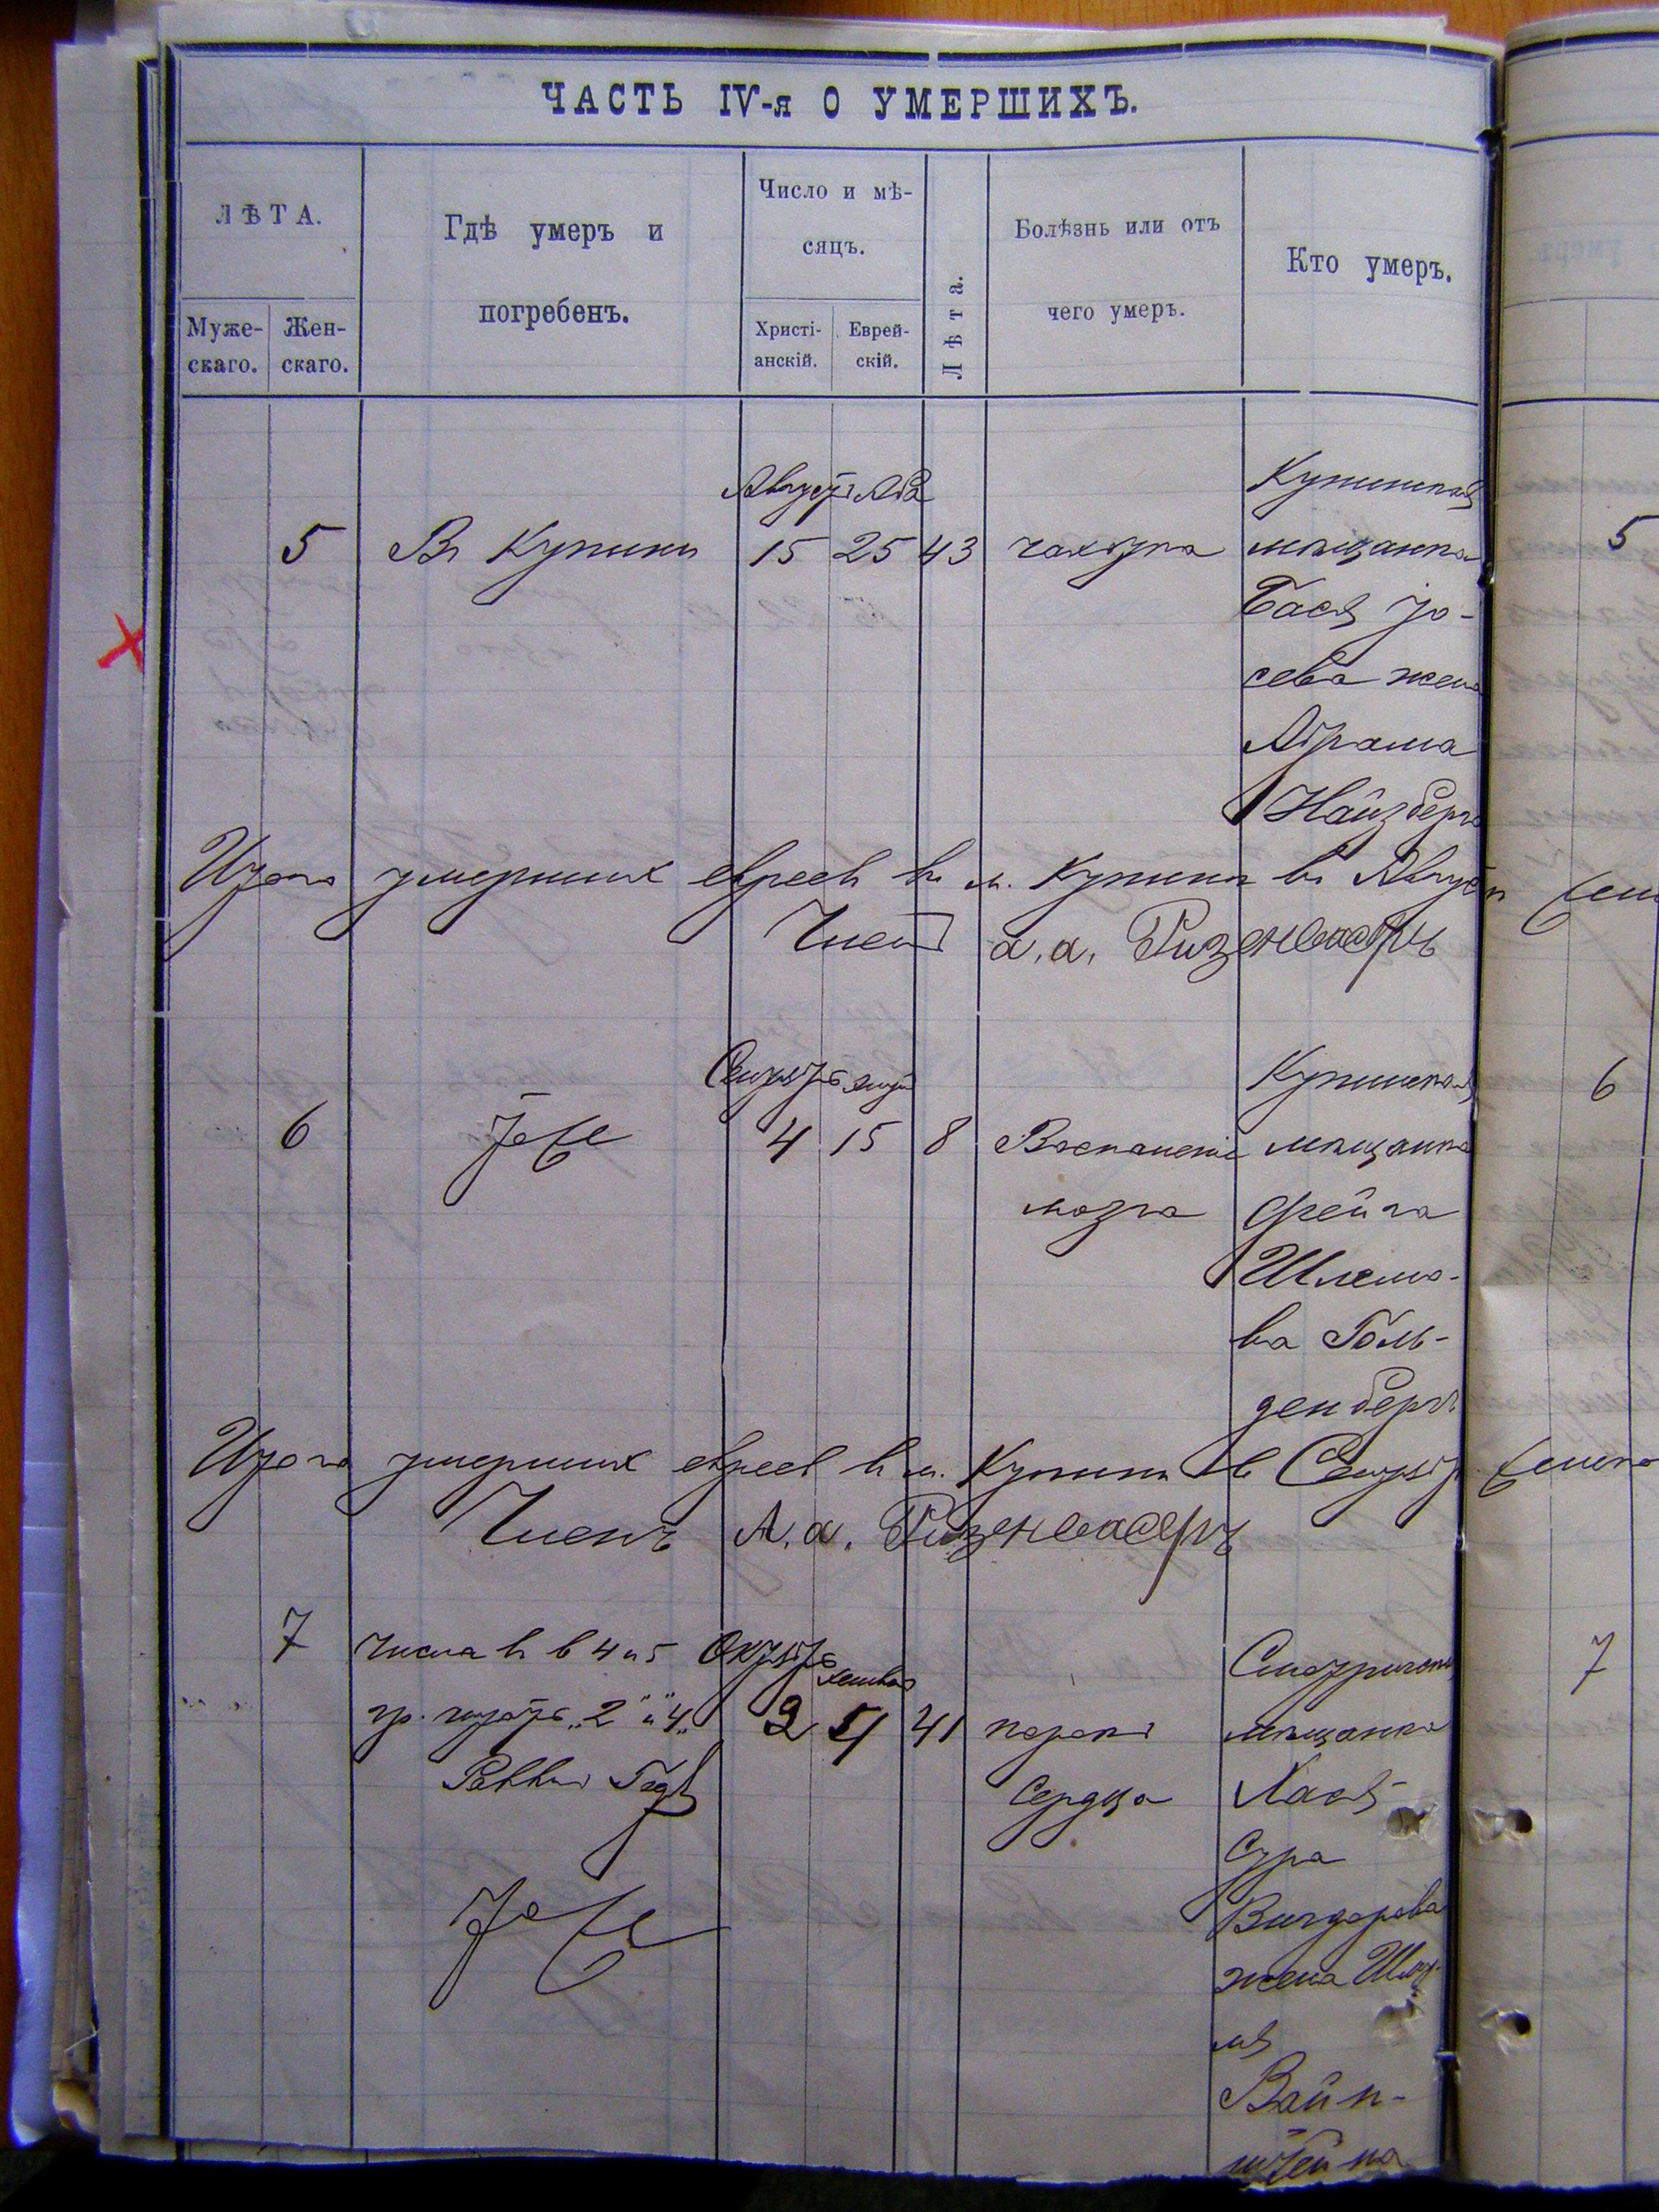 ЧАСТЬ IV-я О УМЕРШИХЪ.
ЛѢТА.
Муже-
скаго.
Жен-
скаго.
Гдѣ умеръ и
погребенъ.
Число и мѣ-
сяцъ.
Христі-
анскій.
Еврей-
скій.
Лѣта.
Болѣзнь или отъ
чего умеръ.
Кто умеръ.
Августъ Ава
5 Въ Купинѣ 15 25 43 чахотка
Купинская
мѣщанка
Бася Іо-
сева жена
Абрама
Найзберга
5
Итого умершихъ евреевъ въ м. Купинѣ въ Августѣ
Членъ а. а. Ризенвасеръ
Сентябрь
6 Тоже 4 15 8 Воспаленіе
мозга
Купинская
мѣщанка
Фейга
Шлемо-
ва Голь-
денбергъ
6
Итого умершихъ евреевъ въ м. Купинѣ въ Сентяб.
Членъ А. а. Ризенвасеръ
7 числа въ в 4 и 5
гр. „2" и "4„
Раввинъ
Тоже
Октябрь
Хешван
2 41 порокъ
Сердца
Смотричская
мѣщанка
Хася
Сура
Вигдорова
жена Шму-
ля
Вайн-
штейна
7